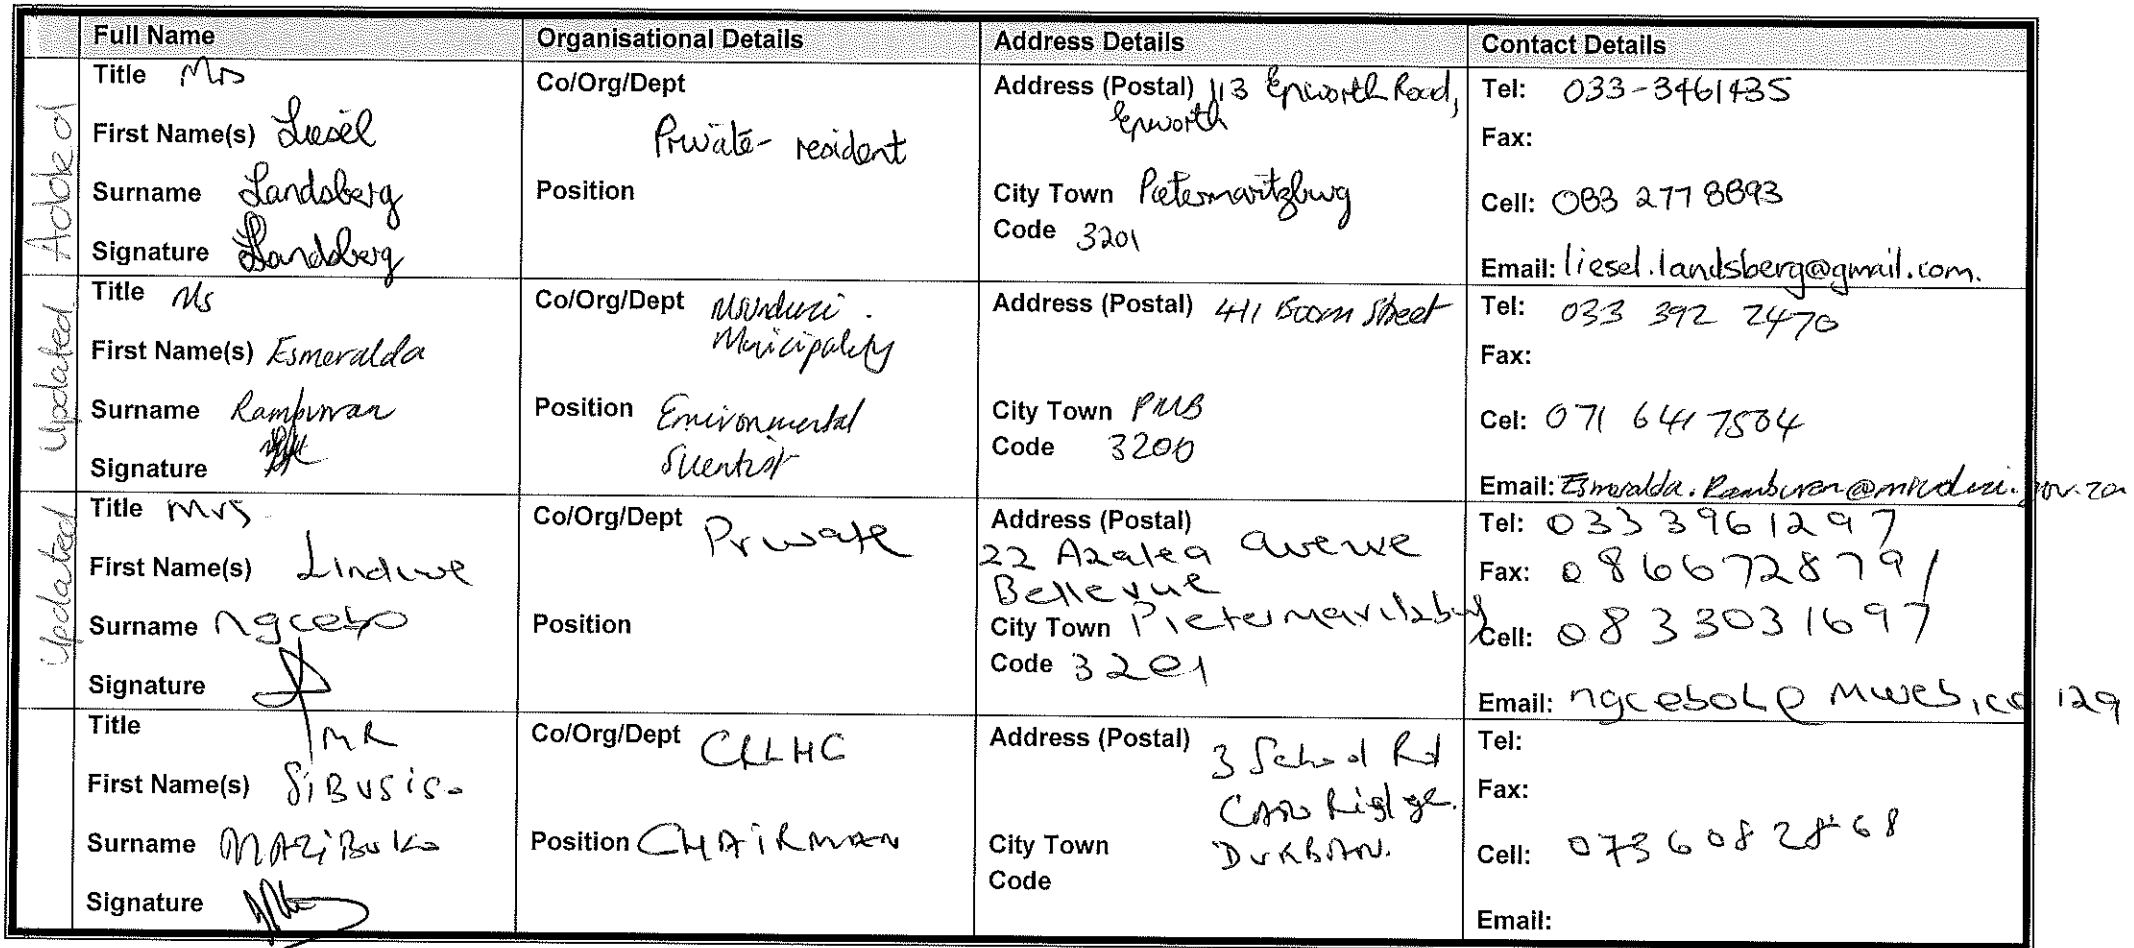 Full Name Organisational Details Address Details Contact Details
Added
Title Mrs
First Name(s) Liesel
Surname Landsberg
Signature Landsberg
Co/Org/Dept
Private - resident
Position
Address (Postal) 113 Epworth Road,
Epworth
City Town Pietermaritzburg
Code 3201
Tel: 033-3461435
Fax:
Cell: 083 277 8893
Email: liesel.landsberg@gmail.com.
Updated
Title Ms
First Name(s) Esmeralda
Surname Ramburan
Signature
Co/Org/Dept Msunduzi
Municipality
Position Environmental
Scientist
Address (Postal) 411 Boom Street
City Town PMB
Code 3200
Tel: 033 392 2470
Fax:
Cel: 071 641 7504
Email: Esmeralda.Ramburan@msunduzi.gov.za
Updated
Title Mrs
First Name(s) Lindiwe
Surname Ngcebo
Signature
Co/Org/Dept Private
Position
Address (Postal)
22 Azalea avenue
Bellevue
City Town Pietermaritzburg
Code 3201
Tel: 033 3961297
Fax: 0866728791
Cell: 0833031697
Email: ngcebol@mweb.co.za
Title MR
First Name(s) SiBusiso
Surname MAZiBuko
Signature
Co/Org/Dept
Position CHAiRMAN
Address (Postal) 3 School Rd
CATO Ridge.
City Town DURBAN.
Code
Tel:
Fax:
Cell: 073 608 2868
Email: